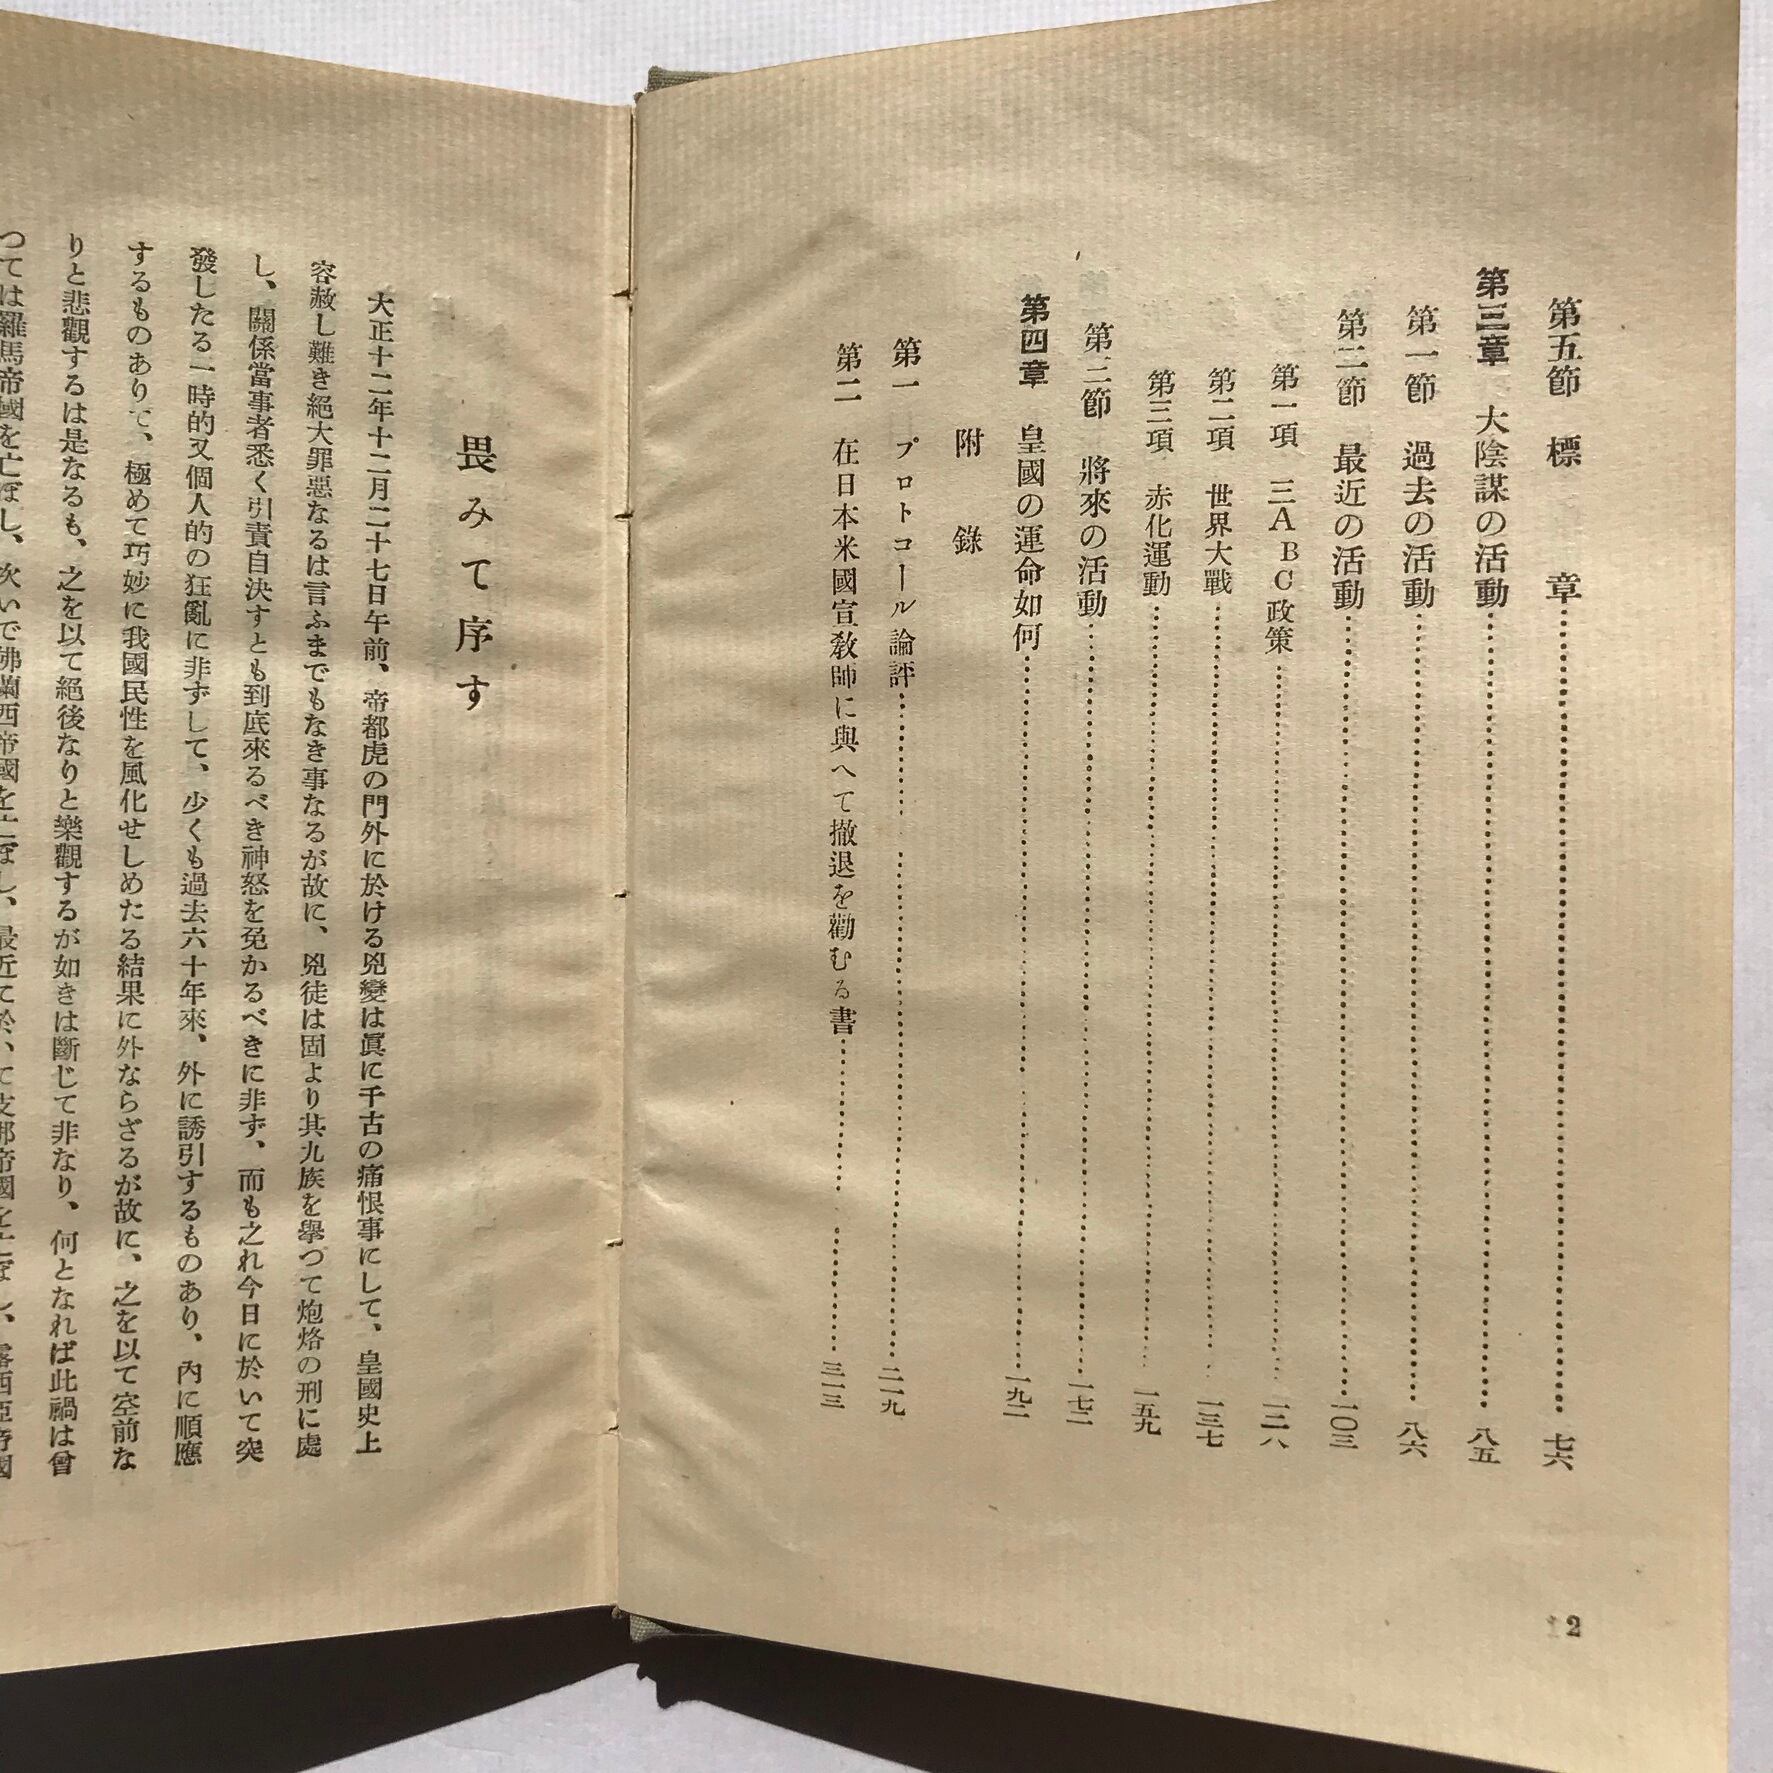 第五節　標　章……七六
第三章　大陰謀の活動……八五
第一節　過去の活動……八六
第二節　最近の活動……一〇三
第一項　三ABC政策……一二八
第二項　世界大戰……一三七
第三項　赤化運動……一五九
第三節　將來の活動……一七二
第四章　皇國の運命如何……一九二
附　錄
第一　プロトコール論評……二一九
第二　在日本米國宣敎師に與へて撤退を勸むる書……三一三
2
畏みて序す
大正十二年十二月二十七日午前、帝都虎の門外に於ける兇變は眞に千古の痛恨事にして、皇國史上
容赦し難き絕大罪惡なるは言ふまでもなき事なるが故に、兇徒は固より其九族を擧つて炮烙の刑に處
し、關係當事者悉く引責自決すとも到底來るべき神怒を免かるべきに非ず、而も之れ今日に於いて突
發したる一時的又個人的の狂亂に非ずして、少くも過去六十年來、外に誘引するものあり、內に順應
するものありて、極めて巧妙に我國民性を風化せしめたる結果に外ならざるが故に、之を以て空前な
りと悲觀するは是なるも、之を以て絕後なりと樂觀するが如きは斷じて非なり、何となれば此禍は曾
つては羅馬帝國を亡ぼし、次いで佛蘭西帝國を亡ぼし、最近に於いて支那帝國を亡ぼし、露西亞帝國